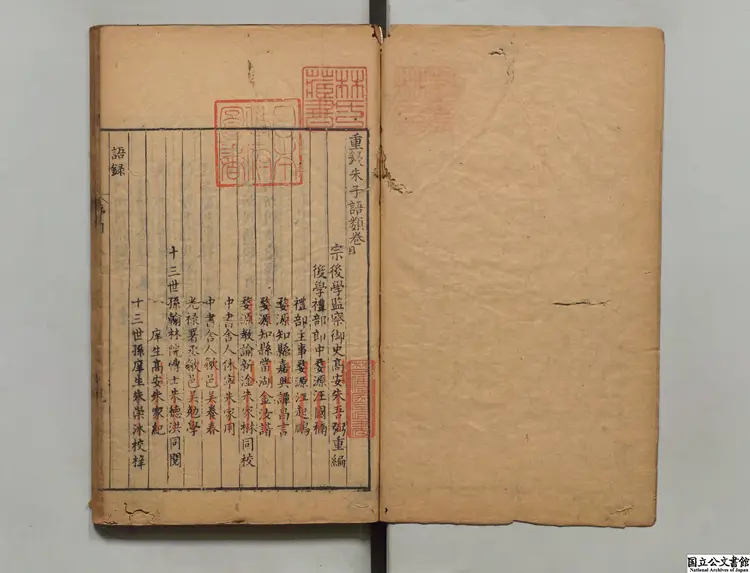 重鋟朱子語類卷目
宗後學監察御史高安朱吾弼重編
後學禮部郎中婺源汪國楠
禮部主事婺源汪起鵬
婺源知縣嘉興譚昌言
婺源知縣當湖金汝諧
婺源教諭新淦朱家楙同校
中書舍人休寧朱家用
中書舍人歙邑吴養春
光祿署丞歙邑吴勉學
十三世孫翰林院博士朱德洪同閱
庠生高安朱家紀
十三世孫庠生朱崇沐校梓
語録
林氏藏書
日本政府圖書
國立公文書館
National Archives of Japan